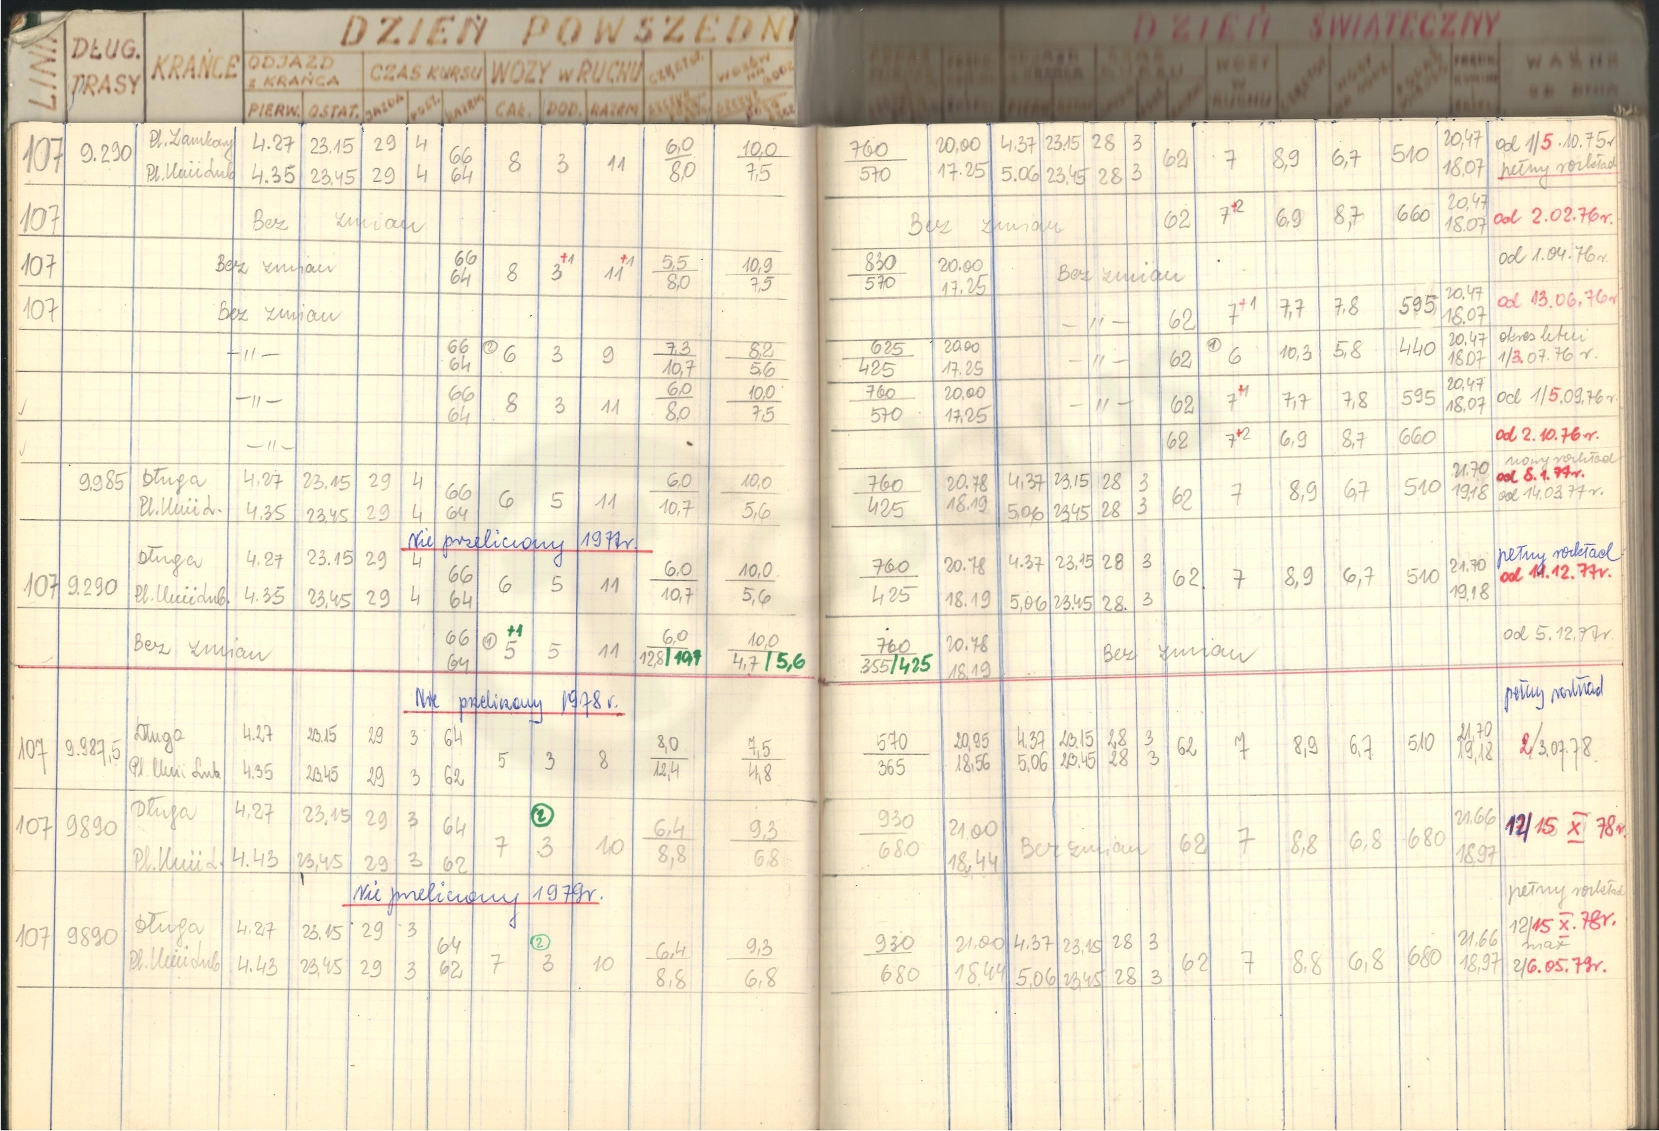 DZIEŃ POWSZEDNI DZIEŃ ŚWIĄTECZNY
LINIA DŁUG. TRASY KRAŃCE ODJAZD z KRAŃCA CZAS KURSU WOZY w RUCHU
PIERW. OSTAT. JAZDA POST. RAZEM CAŁ. DOD. RAZEM
WAŻNE OD DNIA
107 9.290 Pl. Zamkowy 4.27 23.15 29 4 66 8 3 11 6,0 10,0 760 20,00 4.37 23.15 28 3 62 7 8,9 6,7 510 20,47 od 1/5.10.75r
Pl. Unii Lub 4.35 23.45 29 4 64 8,0 7,5 570 17.25 5.06 23,45 28 3 18,07 pełny rozkład
107 Bez zmian Bez zmian 62 7+2 6,9 8,7 660 20,47 18.07 od 2.02.76r.
107 Bez zmian 66 64 8 3+1 11+1 5,5 8,0 10,9 7,5 830 570 20.00 17.25 Bez zmian od 1.04.76r.
107 Bez zmian -〃- 62 7+1 7,7 7,8 595 20.47 18.07 od 13.06.76r
-〃- 66 64 ① 6 3 9 7,3 10,7 8,2 5,6 625 425 20.00 17.25 -〃- 62 ① 6 10,3 5,8 440 20.47 18.07 okres letni 1/3.07.76 r.
-〃- 66 64 8 3 11 6,0 8,0 10,0 7,5 760 570 20,00 17,25 -〃- 62 7+1 7,7 7,8 595 20,47 18,07 od 1/5.09.76r.
-〃- 62 7+2 6,9 8,7 660 od 2.10.76r.
nowy rozkład
9.985 Długa 4.27 23.15 29 4 66 6 5 11 6,0 10,0 760 20.78 4,37 23,15 28 3 62 7 8,9 6,7 510 21.70 od 8.1.77r.
Pl. Unii L. 4.35 23.45 29 4 64 10,7 5,6 425 18.19 5,06 23,45 28 3 19,18 od 14.03.77r.
Nie przeliczony 1977r.
107 9.290 Długa 4.27 23.15 29 4 66 6 5 11 6,0 10,0 760 20.78 4.37 23,15 28 3 62 7 8,9 6,7 510 21.70 pełny rozkład
Pl. Unii Lub. 4.35 23,45 29 4 64 10,7 5,6 425 18.19 5,06 23.45 28. 3 19,18 od 11.12.77r.
Bez zmian 66 64 ① 5+1 5 11 6,0 12,8/10,7 10,0 4,7/5,6 760 355/425 20.78 18.19 Bez zmian od 5.12.77r.
Nie przeliczony 1978 r. pełny rozkład
107 9.987,5 Długa 4.27 23.15 29 3 64 5 3 8 8,0 7,5 570 20,95 4.37 23.15 28 3 62 7 8,9 6,7 510 21,70 2/3.07.78
Pl. Unii Lub 4.35 23.45 29 3 62 12,4 4,8 365 18,56 5,06 23.45 28 3 19,18
107 9890 Długa 4,27 23,15 29 3 64 7 3 ② 10 6,4 9,3 930 21.00 Bez zmian 62 7 8,8 6,8 680 21,66 12/15 X 78r.
Pl. Unii L. 4.43 23,45 29 3 62 8,8 6,8 680 18,44 18,97
Nie przeliczony 1979r. pełny rozkład
107 9890 Długa 4.27 23.15 29 3 64 7 3 ② 10 6,4 9,3 930 21.00 4.37 23,15 28 3 62 7 8,8 6,8 680 21,66 12/15 X. 78r.
Pl. Unii Lub 4.43 23,45 29 3 62 8,8 6,8 680 18,44 5,06 23,45 28 3 18,97 2/6.05.79r.